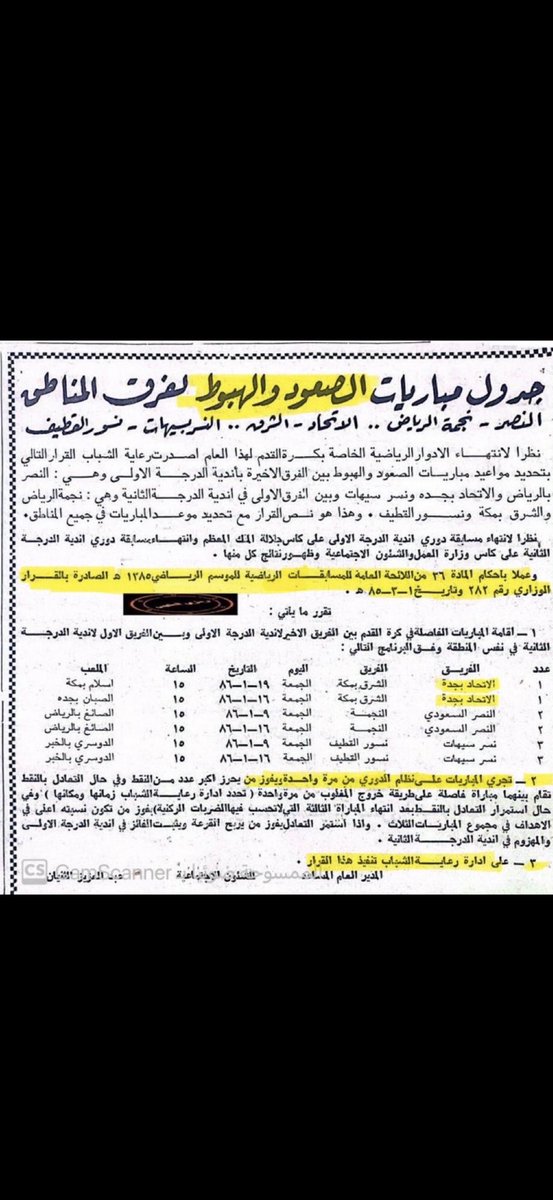 جدول مباريات الصعود والهبوط لفرق المناطق
النصر - نجمة الرياض .. الاتحاد - الشرق .. النسر بسيهات - نسور القطيف
نظرا لانتهاء الادوار الرياضية الخاصة بكرة القدم لهذا العام اصدرت رعاية الشباب القرار التالي
بتحديد مواعيد مباريات الصعود والهبوط بين الفرق الاخيرة بأندية الدرجة الاولى وهي : النصر
بالرياض والاتحاد بجده ونسر سيهات وبين الفرق الاولى في اندية الدرجة الثانية وهي : نجمة الرياض
والشرق بمكة ونسور القطيف . وهذا هو نص القرار مع تحديد موعد المباريات في جميع المناطق.
نظرا لانتهاء مسابقة دوري اندية الدرجة الاولى على كأس جلالة الملك المعظم وانتهاء مسابقة دوري اندية الدرجة
الثانية على كأس وزارة العمل والشئون الاجتماعية وظهور نتائج كل منها .
وعملا بأحكام المادة ٣٦ من اللائحة العامة للمسابقات الرياضية للموسم الرياضي ١٣٨٥ هـ الصادرة بالقرار
الوزاري رقم ٢٨٢ وتاريخ ١-٣-٨٥ هـ .
تقرر ما يأتي :
١ - اقامة المباريات الفاصلة في كرة القدم بين الفريق الاخير لاندية الدرجة الاولى وبين الفريق الاول لاندية الدرجة
الثانية في نفس المنطقة وفق البرنامج التالي :
عدد الفريق الفريق اليوم التاريخ الساعة الملعب
١ الاتحاد بجدة الشرق بمكة الجمعة ١٩-١-٨٦ ١٥ اسلام بمكة
١ الاتحاد بجدة الشرق بمكة الجمعة ١٦-١-٨٦ ١٥ الصبان بجده
٢ النصر السعودي النجمة الجمعة ٩-١-٨٦ ١٥ الصائغ بالرياض
٢ النصر السعودي النجمة الجمعة ١٦-١-٨٦ ١٥ الصائغ بالرياض
٣ نسر سيهات نسور القطيف الجمعة ٩-١-٨٦ ١٥ الدوسري بالخبر
٣ نسر سيهات نسور القطيف الجمعة ١٦-١-٨٦ ١٥ الدوسري بالخبر
٢ - تجري المباريات على نظام الدوري من مرة واحدة ويفوز من يحرز اكبر عدد من النقط وفي حال التعادل بالنقط
تقام بينهما مباراة فاصلة على طريقة خروج المغلوب من مرة واحدة ( تحدد ادارة رعاية الشباب زمانها ومكانها ) وفي
حال استمرار التعادل بالنقط بعد انتهاء المباراة الثالثة التي لاتحسب فيها الضربات الركنية ) يفوز من تكون نسبته اعلى في
الاهداف في مجموع المباريات الثلاث . واذا استمر التعادل يفوز من يربح القرعة ويثبت الفائز في اندية الدرجة الاولى
والمهزوم في اندية الدرجة الثانية .
٣ - على ادارة رعاية الشباب تنفيذ هذا القرار .
CS CamScanner الممسوحة ضوئيا بـ
المدير العام للشئون الاجتماعية عبد العزيز الثنيان